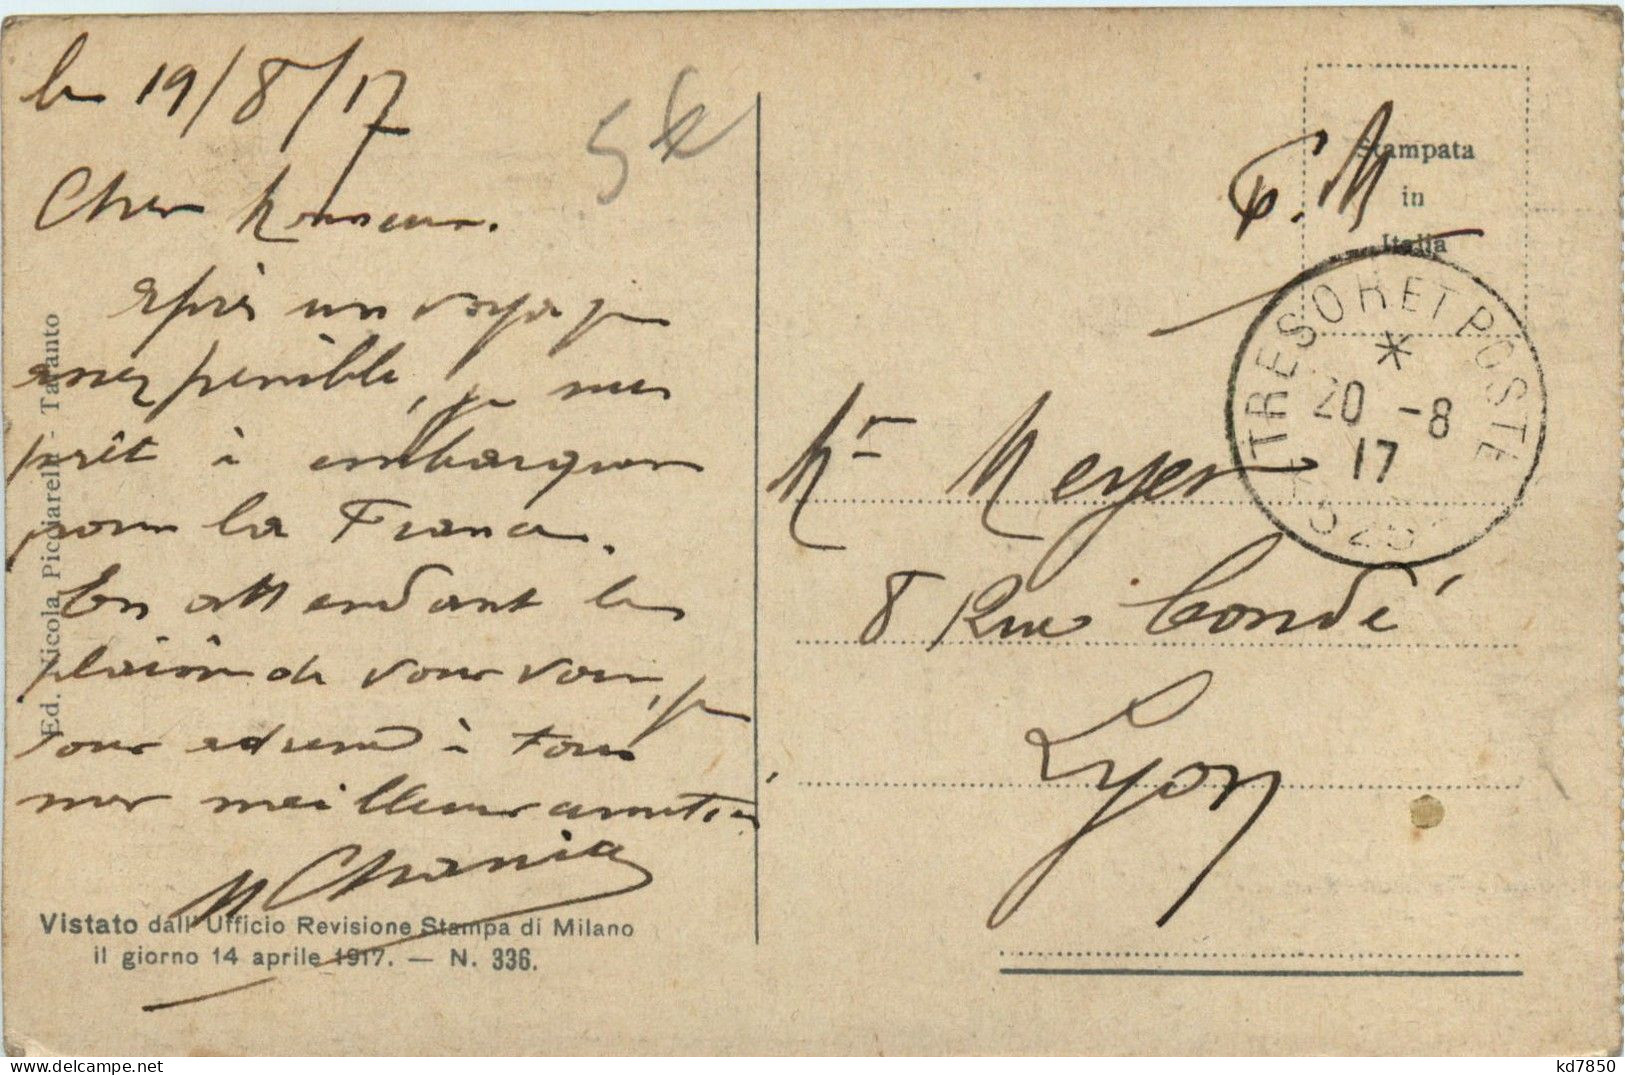 le 19/8/17
Cher Monsieur.
après un voyage
assez pénible, je suis
prêt à embarquer
pour la France.
En attendant le
plaisir de vous voir, je
vous adresse à tous
mes meilleures amitiés
5€
F.M
Stampata
in
Italia
TRESOR ET POSTES
*
20 -8
17
Mr Meyer
8 Rue Condé
Lyon
Ed. Nicola Picciarelli - Taranto
Vistato dall' Ufficio Revisione Stampa di Milano
il giorno 14 aprile 1917. — N. 336.
kd7850